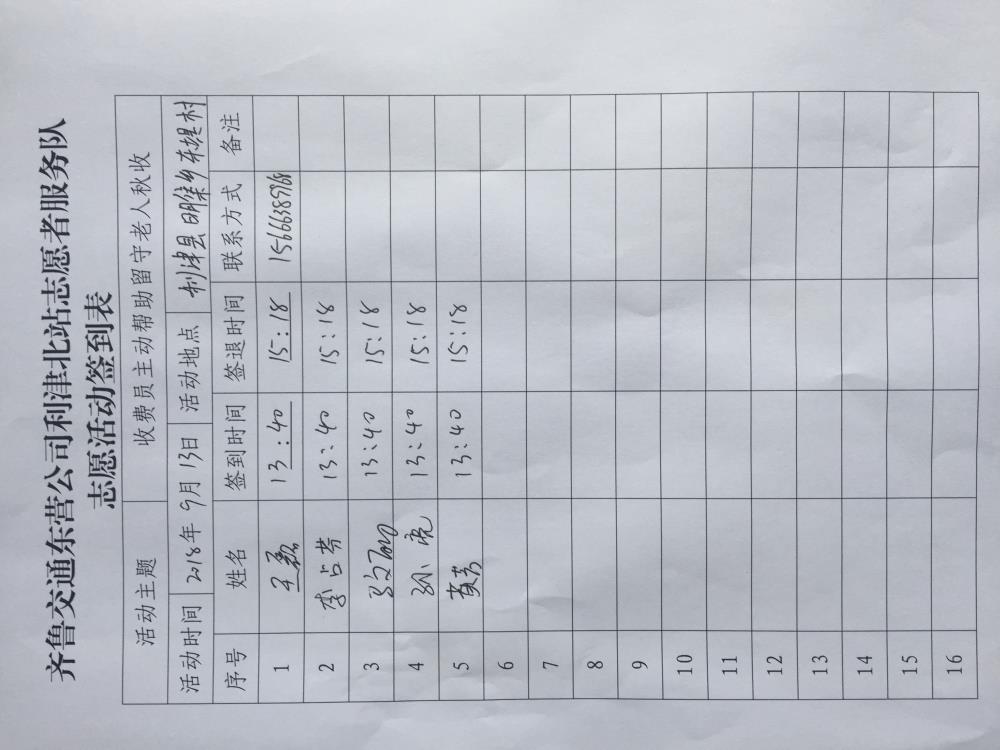 齐鲁交通东营公司利津北站志愿者服务队
志愿活动签到表
活动主题 收费员主动帮助留守老人秋收
活动时间 2018年 9月 13日 活动地点 利津县明集乡东堤村
序号 姓名 签到时间 签退时间 联系方式 备注
1 13:40 15:18
2 李占芳 13:40 15:18
3 13:40 15:18
4 孙亮 13:40 15:18
5 黄芳 13:40 15:18
6
7
8
9
10
11
12
13
14
15
16